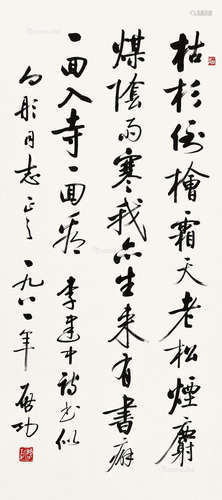 枯杉倒檜霜天老松煙麝
煤陰雨寒我亦生来有書癖
一囬入寺一囬看 李建中詩書似
向彤同志正之 一九八一年 啓功